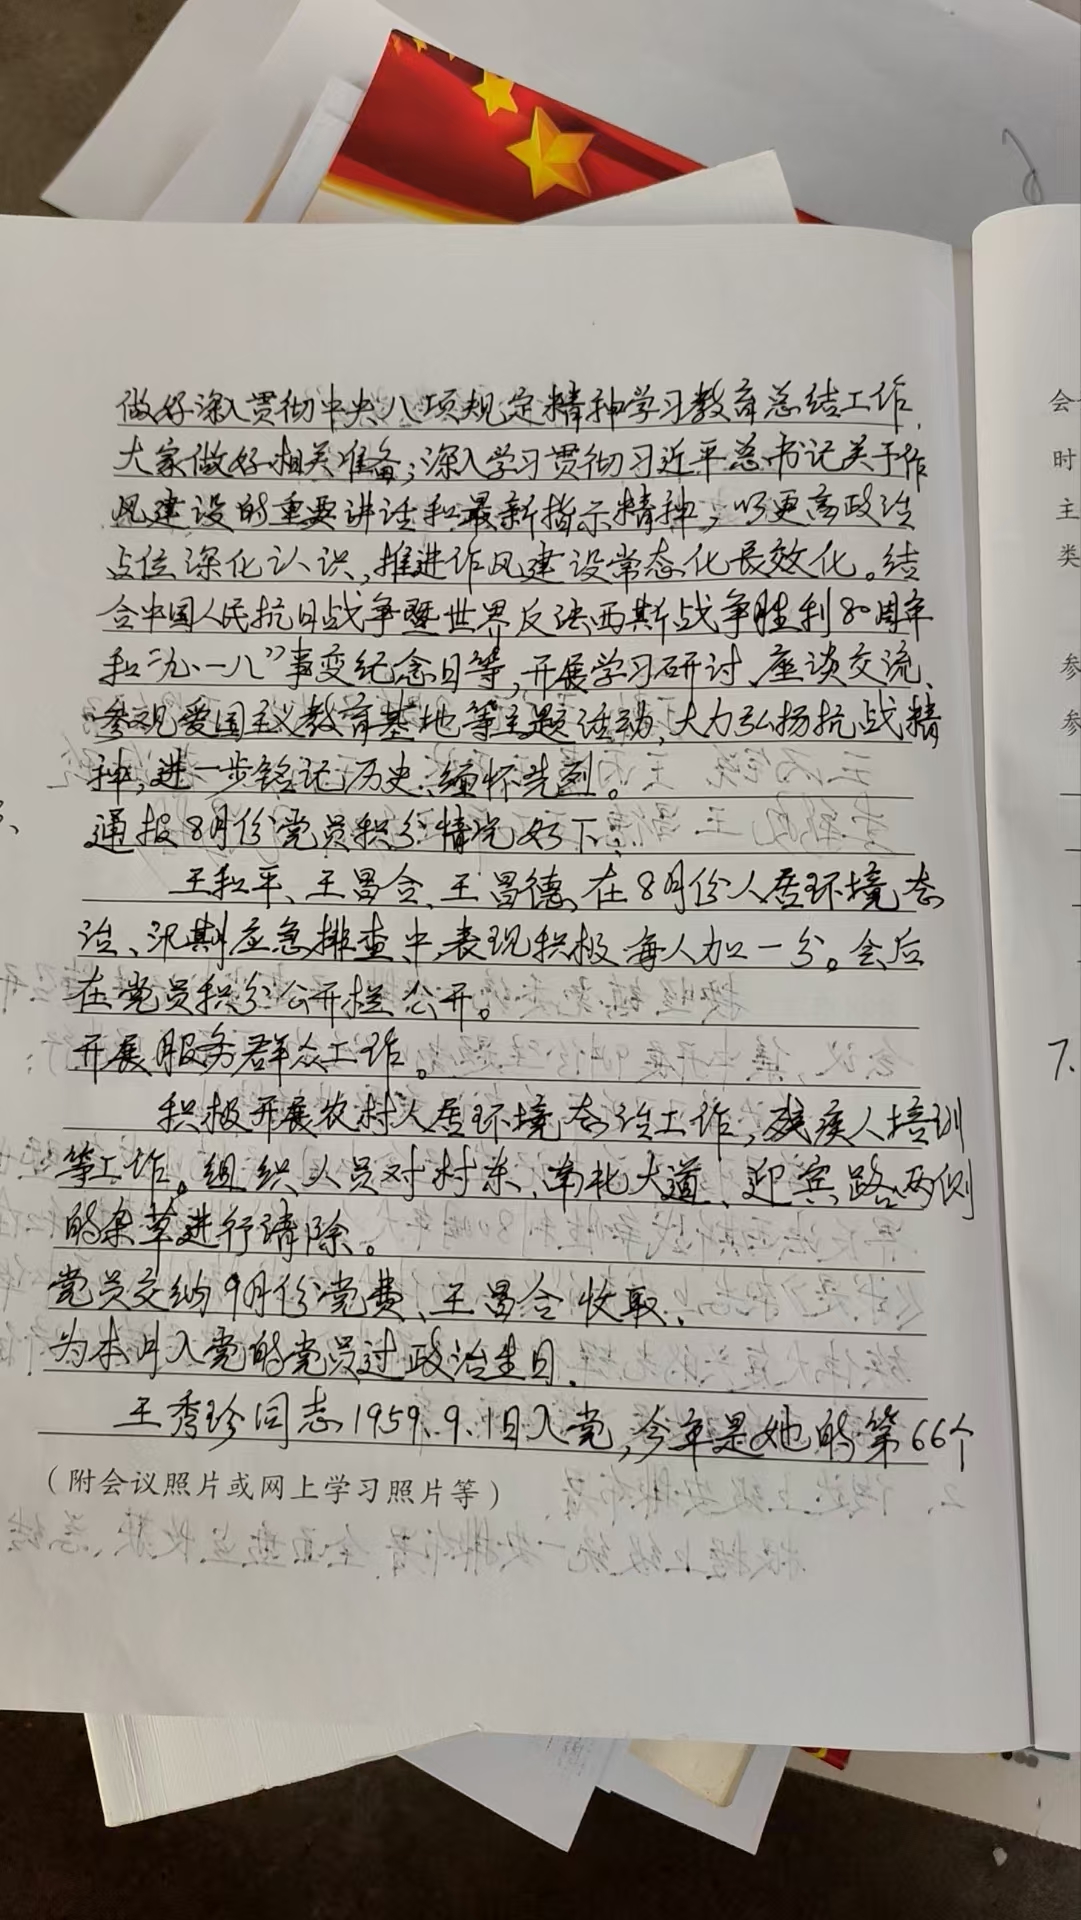 做好深入贯彻中央八项规定精神学习教育总结工作,
大家做好相关准备;深入学习贯彻习近平总书记关于作
风建设的重要讲话和最新指示精神,以更高政治
占位深化认识,推进作风建设常态化长效化。结
合中国人民抗日战争暨世界反法西斯战争胜利80周年
和“九·一八”事变纪念日等,开展学习研讨、座谈交流、
参观爱国主义教育基地等主题活动,大力弘扬抗战精
神,进一步铭记历史、缅怀先烈。
通报8月份党员积分情况如下:
王和平、王昌会、王昌德,在8月份人居环境态
治、汛期应急排查中,表现积极,每人加一分。会后
在党员积分公开栏公开。
开展服务群众工作。
积极开展农村人居环境态治工作,残疾人培训
等工作。组织人员对村东、南北大道、迎宾路两侧
的杂草进行清除。
党员交纳9月份党费、王昌会收取.
为本月入党的党员过政治生日.
王秀珍同志1959.9.1日入党,今年是她的第66个
(附会议照片或网上学习照片等)
会
时
主
类
参
参
7.